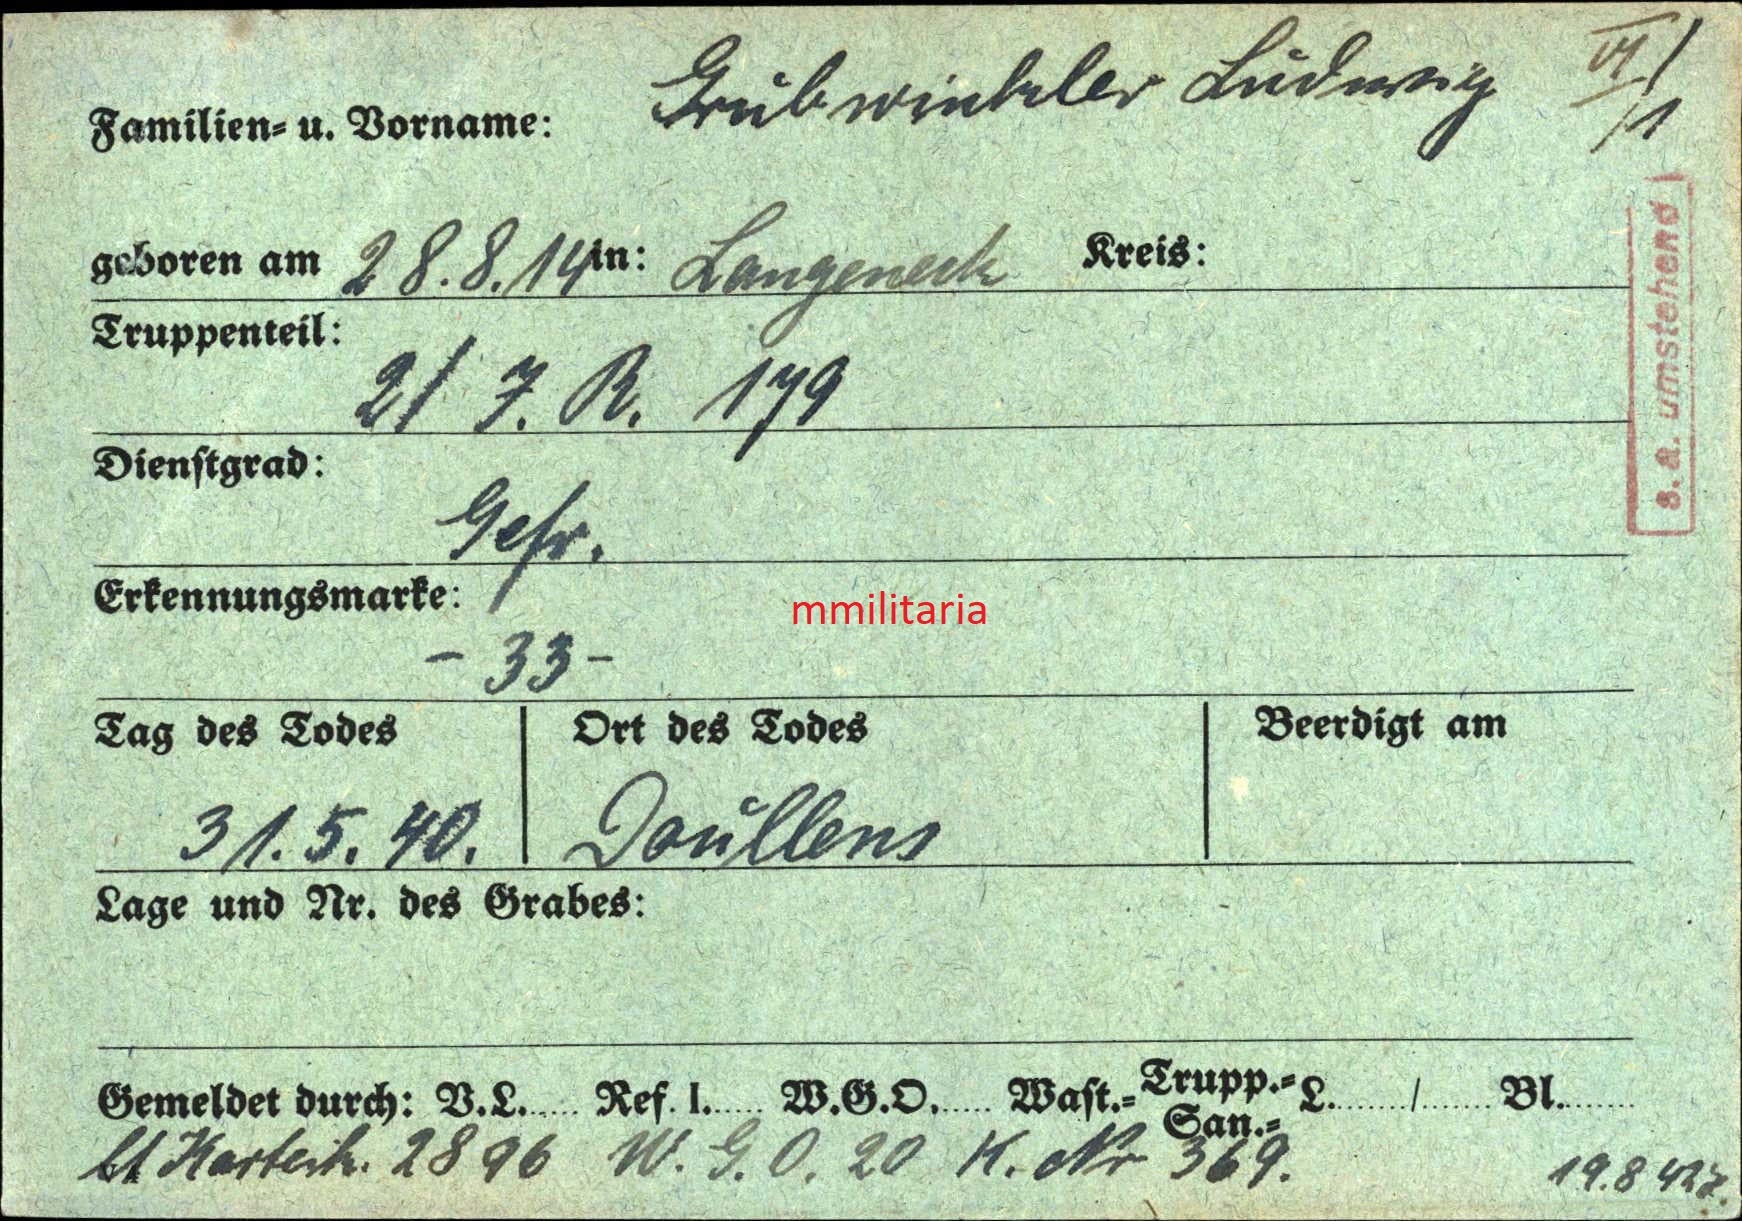 Familien- u. Vorname: Grubwinkler Ludwig VI/1
geboren am 28.8.14 in: Langeneck Kreis:
s. a. umstehend
Truppenteil:
2/ J. R. 179
Dienstgrad:
Gefr.
Erkennungsmarke:
- 33 -
mmilitaria
Tag des Todes Ort des Todes Beerdigt am
31.5.40. Doullens
Lage und Nr. des Grabes:
Gemeldet durch: V.L..... Ref. I..... W.G.O..... Wast.- Trupp.- San.- L......../....... Bl........
lt Karteik. 2896 W. G. O. 20 K. Nr 369.
19.8.42